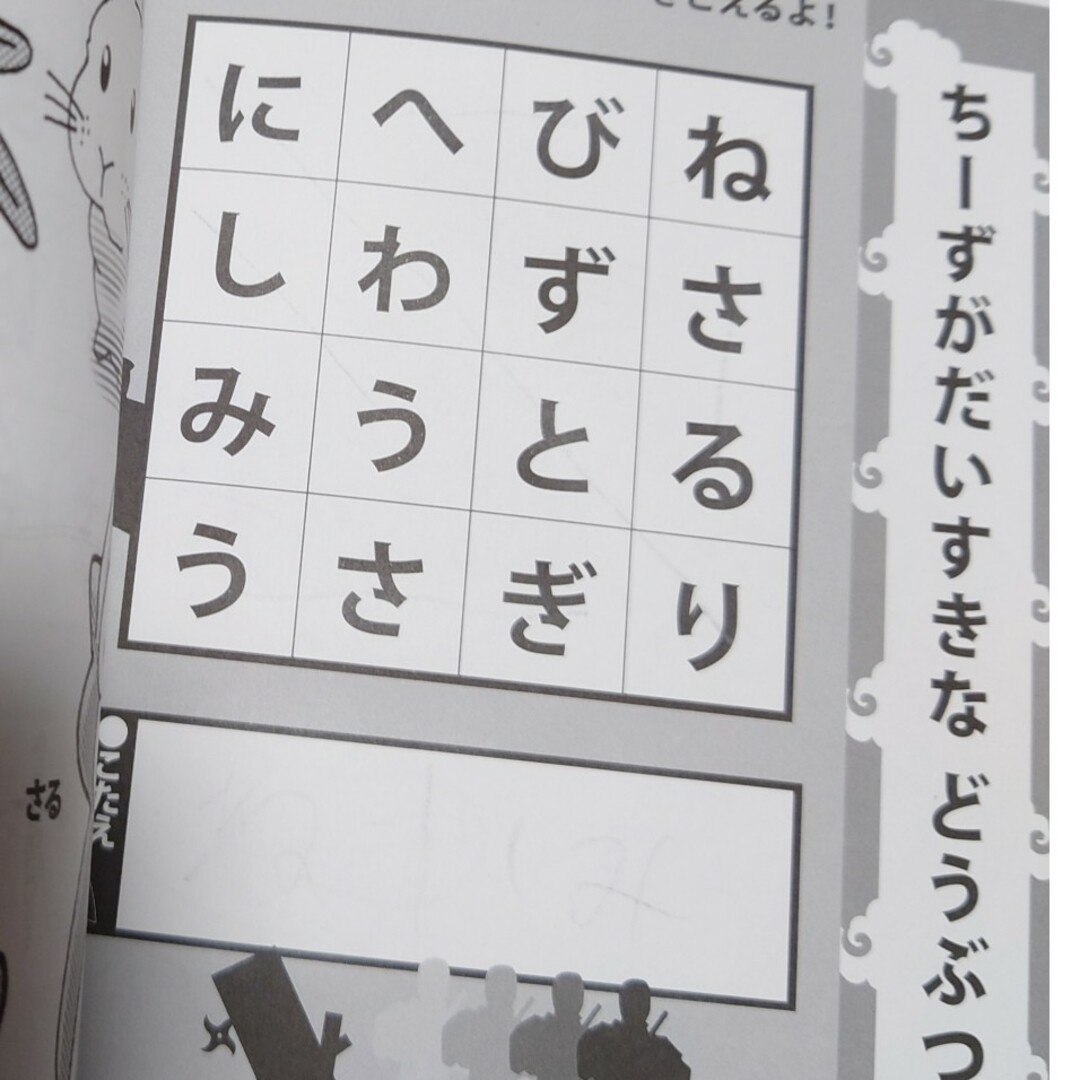 ちーずがだいすきな どうぶつ
こえるよ!
にへびね
しわずさ
みうとる
うさぎり
●こたえ
さる